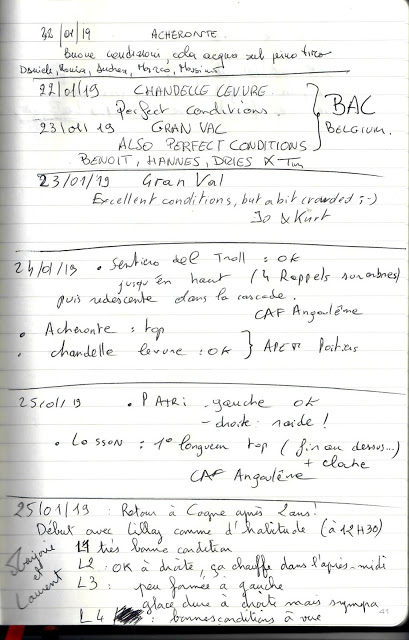 22/01/19 ACHERONTE.
Buone condizioni, cola acqua sul primo tiro
Daniele, Andrea, Marco, Massimo
22/01/19 CHANDELLE LEVURE
Perfect conditions.
23/01/19 GRAN VAC
ALSO PERFECT CONDITIONS
BENOIT, HANNES, DRIES & Tim
} BAC
BELGIUM.
23/01/19 Gran Val
Excellent conditions, but a bit crowded ;-)
Jo & Kurt
24/01/19 • Sentiero del Troll : OK
jusqu'en haut (4 Rappels sur arbres)
puis redescente dans la cascade.
CAF Angoulême
• Acheronte : top
• chandelle levure : OK } Poitiers
25/01/19 • PATRi - gauche OK
- droite : raide !
• LOSSON : 1° longueur top (fin au dessus...)
+ cloche
CAF Angoulême
25/01/19 : Retour à Cogne après 2 ans !
Début avec Lillaz comme d'habitude (à 12H30)
Marjorie et Laurent
L1 très bonne condition
L2 : OK à droite, ça chauffe dans l'après-midi
L3 : peu formée à gauche
glace dure à droite mais sympa
L4 : bonnes conditions à vue
41